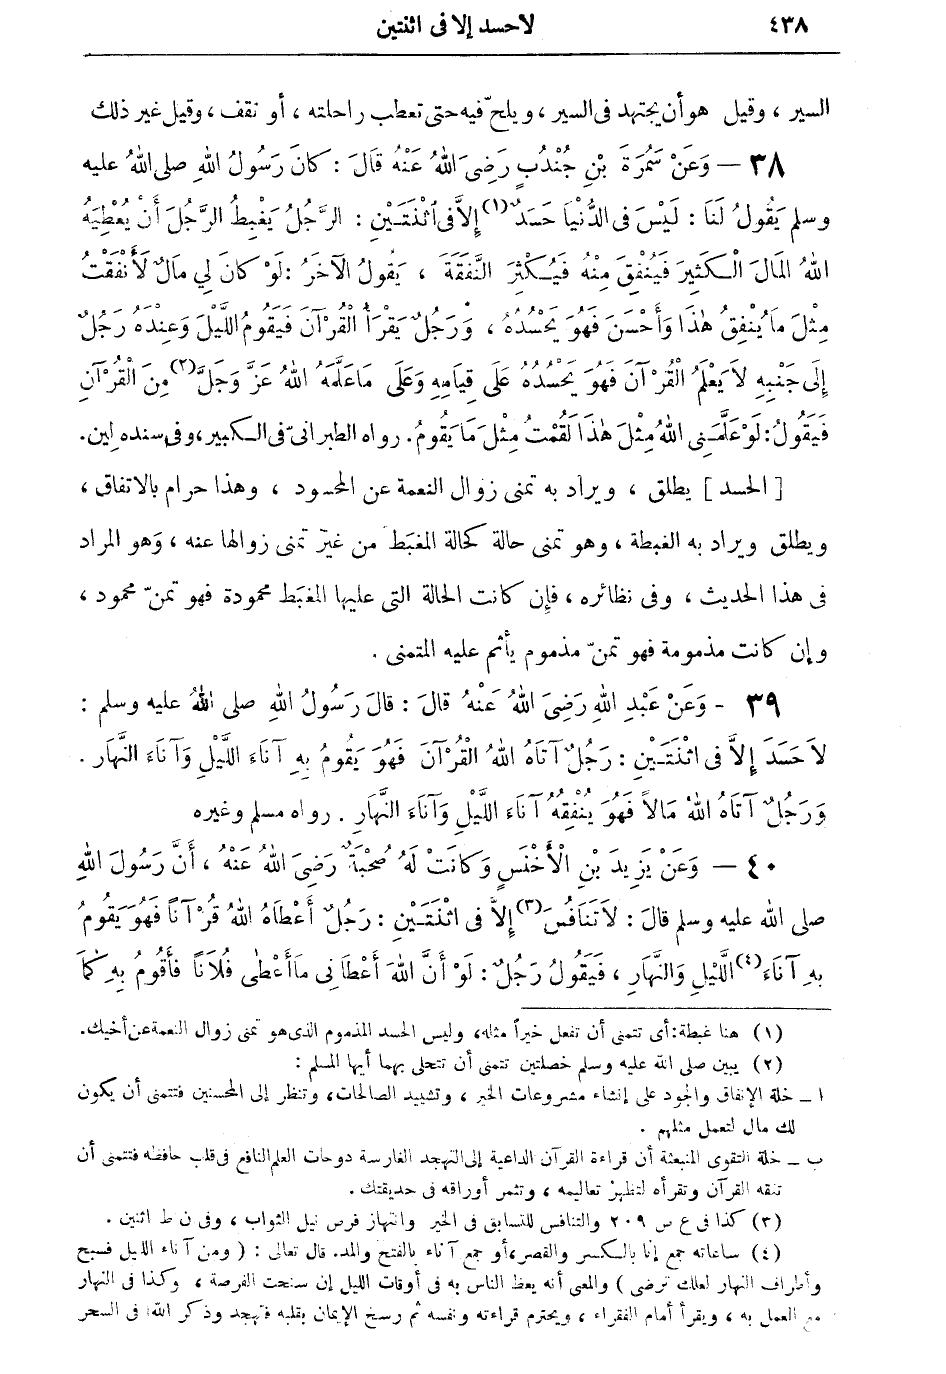 ٤٣٨ لا حسد إلا فى اثنتين
السير ، وقيل هو أن يجتهد فى السير ، ويلحّ فيه حتى تعطب راحلته ، أو نقف ، وقيل غير ذلك
٣٨ — وَعَنْ سَمُرَةَ بْنِ جُنْدُبٍ رَضِىَ اللهُ عَنْهُ قَالَ : كَانَ رَسُولُ اللهِ صلى اللهُ عليه
وسلم يَقُولُ لَنَا : لَيْسَ فى الدُّنْيَا حَسَدٌ (١) إِلاَّ فى اثْنَتَيْنِ : الرَّجُلُ يَغْبِطُ الرَّجُلَ أَنْ يُعْطِيَهُ
اللهُ المَالَ الْكَثِيرَ فَيُنْفِقَ مِنْهُ فَيُكْثِرَ النَّفَقَةَ ، يَقُولُ الآخَرُ : لَوْ كَانَ لِي مَالٌ لَأَنْفَقْتُ
مِثْلَ مَا يُنْفِقُ هٰذَا وَأَحْسَنَ فَهُوَ يَحْسُدُهُ ، وَرَجُلٌ يَقْرَأُ الْقُرْآنَ فَيَقُومُ اللَّيْلَ وَعِنْدَهُ رَجُلٌ
إِلَى جَنْبِهِ لاَ يَعْلَمُ الْقُرْآنَ فَهُوَ يَحْسُدُهُ عَلَى قِيَامِهِ وَعَلَى مَا عَلَّمَهُ اللهُ عَزَّ وَجَلَّ (٢) مِنَ الْقُرْآنِ
فَيَقُولُ : لَوْ عَلَّمَنِى اللهُ مِثْلَ هٰذَا لَقُمْتُ مِثْلَ مَا يَقُومُ. رواه الطبرانىّ فى الكبير، وفى سنده لين.
[ الحسد ] يطلق ، ويراد به تمنى زوال النعمة عن المحسود ، وهذا حرام بالاتفاق ،
ويطلق ويراد به الغبطة ، وهو تمنى حالة كحالة المغبَط من غير تمنى زوالها عنه ، وهو المراد
فى هذا الحديث ، وفى نظائره ، فإن كانت الحالة التى عليها المغبَط محمودة فهو تمنّ محمود ،
وإن كانت مذمومة فهو تمنّ مذموم يأثم عليه المتمنى .
٣٩ - وَعَنْ عَبْدِ اللهِ رَضِىَ اللهُ عَنْهُ قَالَ : قَالَ رَسُولُ اللهِ صلى اللهُ عليه وسلم :
لاَ حَسَدَ إِلاَّ فى اثْنَتَيْنِ : رَجُلٌ آتَاهُ اللهُ الْقُرْآنَ فَهُوَ يَقُومُ بِهِ آنَاءَ اللَّيْلِ وَآنَاءَ النَّهَارِ .
وَرَجُلٌ آتَاهُ اللهُ مَالاً فَهُوَ يُنْفِقُهُ آنَاءَ اللَّيْلِ وَآنَاءَ النَّهَارِ . رواه مسلم وغيره
٤٠ — وَعَنْ يَزِيدَ بْنِ الْأَخْنَسِ وَكَانَتْ لَهُ صُحْبَةٌ رَضِىَ اللهُ عَنْهُ ، أَنَّ رَسُولَ اللهِ
صلى الله عليه وسلم قَالَ : لاَ تَنَافُسَ (٣) إِلاَّ فى اثْنَتَيْنِ : رَجُلٌ أَعْطَاهُ اللهُ قُرْآنًا فَهُوَ يَقُومُ
بِهِ آنَاءَ (٤) اللَّيْلِ وَالنَّهَارِ ، فَيَقُولُ رَجُلٌ : لَوْ أَنَّ اللهَ أَعْطَانِى مَا أَعْطَى فُلَانًا فَأَقُومُ بِهِ كَمَا
(١) هنا غبطة : أى تتمنى أن تفعل خيراً مثله، وليس الحسد المذموم الذى هو تمنى زوال النعمة عن أخيك.
(٢) يبين صلى الله عليه وسلم خصلتين تتمنى أن تتحلى بهما أيها المسلم :
ا ـ خلة الإنفاق والجود على إنشاء مشروعات الخير ، وتشييد الصالحات، وتنظر إلى المحسنين فتتمنى أن يكون
لك مال لتعمل مثلهم .
ب ـ خلة التقوى المنبعثة أن قراءة القرآن الداعية إلى التهجد الغارسة دوحات العلم النافع فى قلب حافظه فتتمنى أن
تنقه القرآن وتقرأه لتظهر تعاليمه ، وتثمر أوراقه فى حديقتك .
(٣) كذا فى ع س ٢٠٩ والتنافس للتسابق فى الخير وانتهاز فرص نيل الثواب ، وفى ن ط اثنين .
(٤) ساعاته جمع إنا بالكسر والقصر، أو جمع آناء بالفتح والمد. قال تعالى : ( ومن آناء الليل فسبح
وأطراف النهار لعلك ترضى ) والمعنى أنه يعظ الناس به فى أوقات الليل إن سنحت الفرصة ، وكذا فى النهار
مع العمل به ، ويقرأ أمام الفقراء ، ويحترم قراءته ونفسه ثم رسخ الإيمان بقلبه فتهجد وذكر الله فى السحر